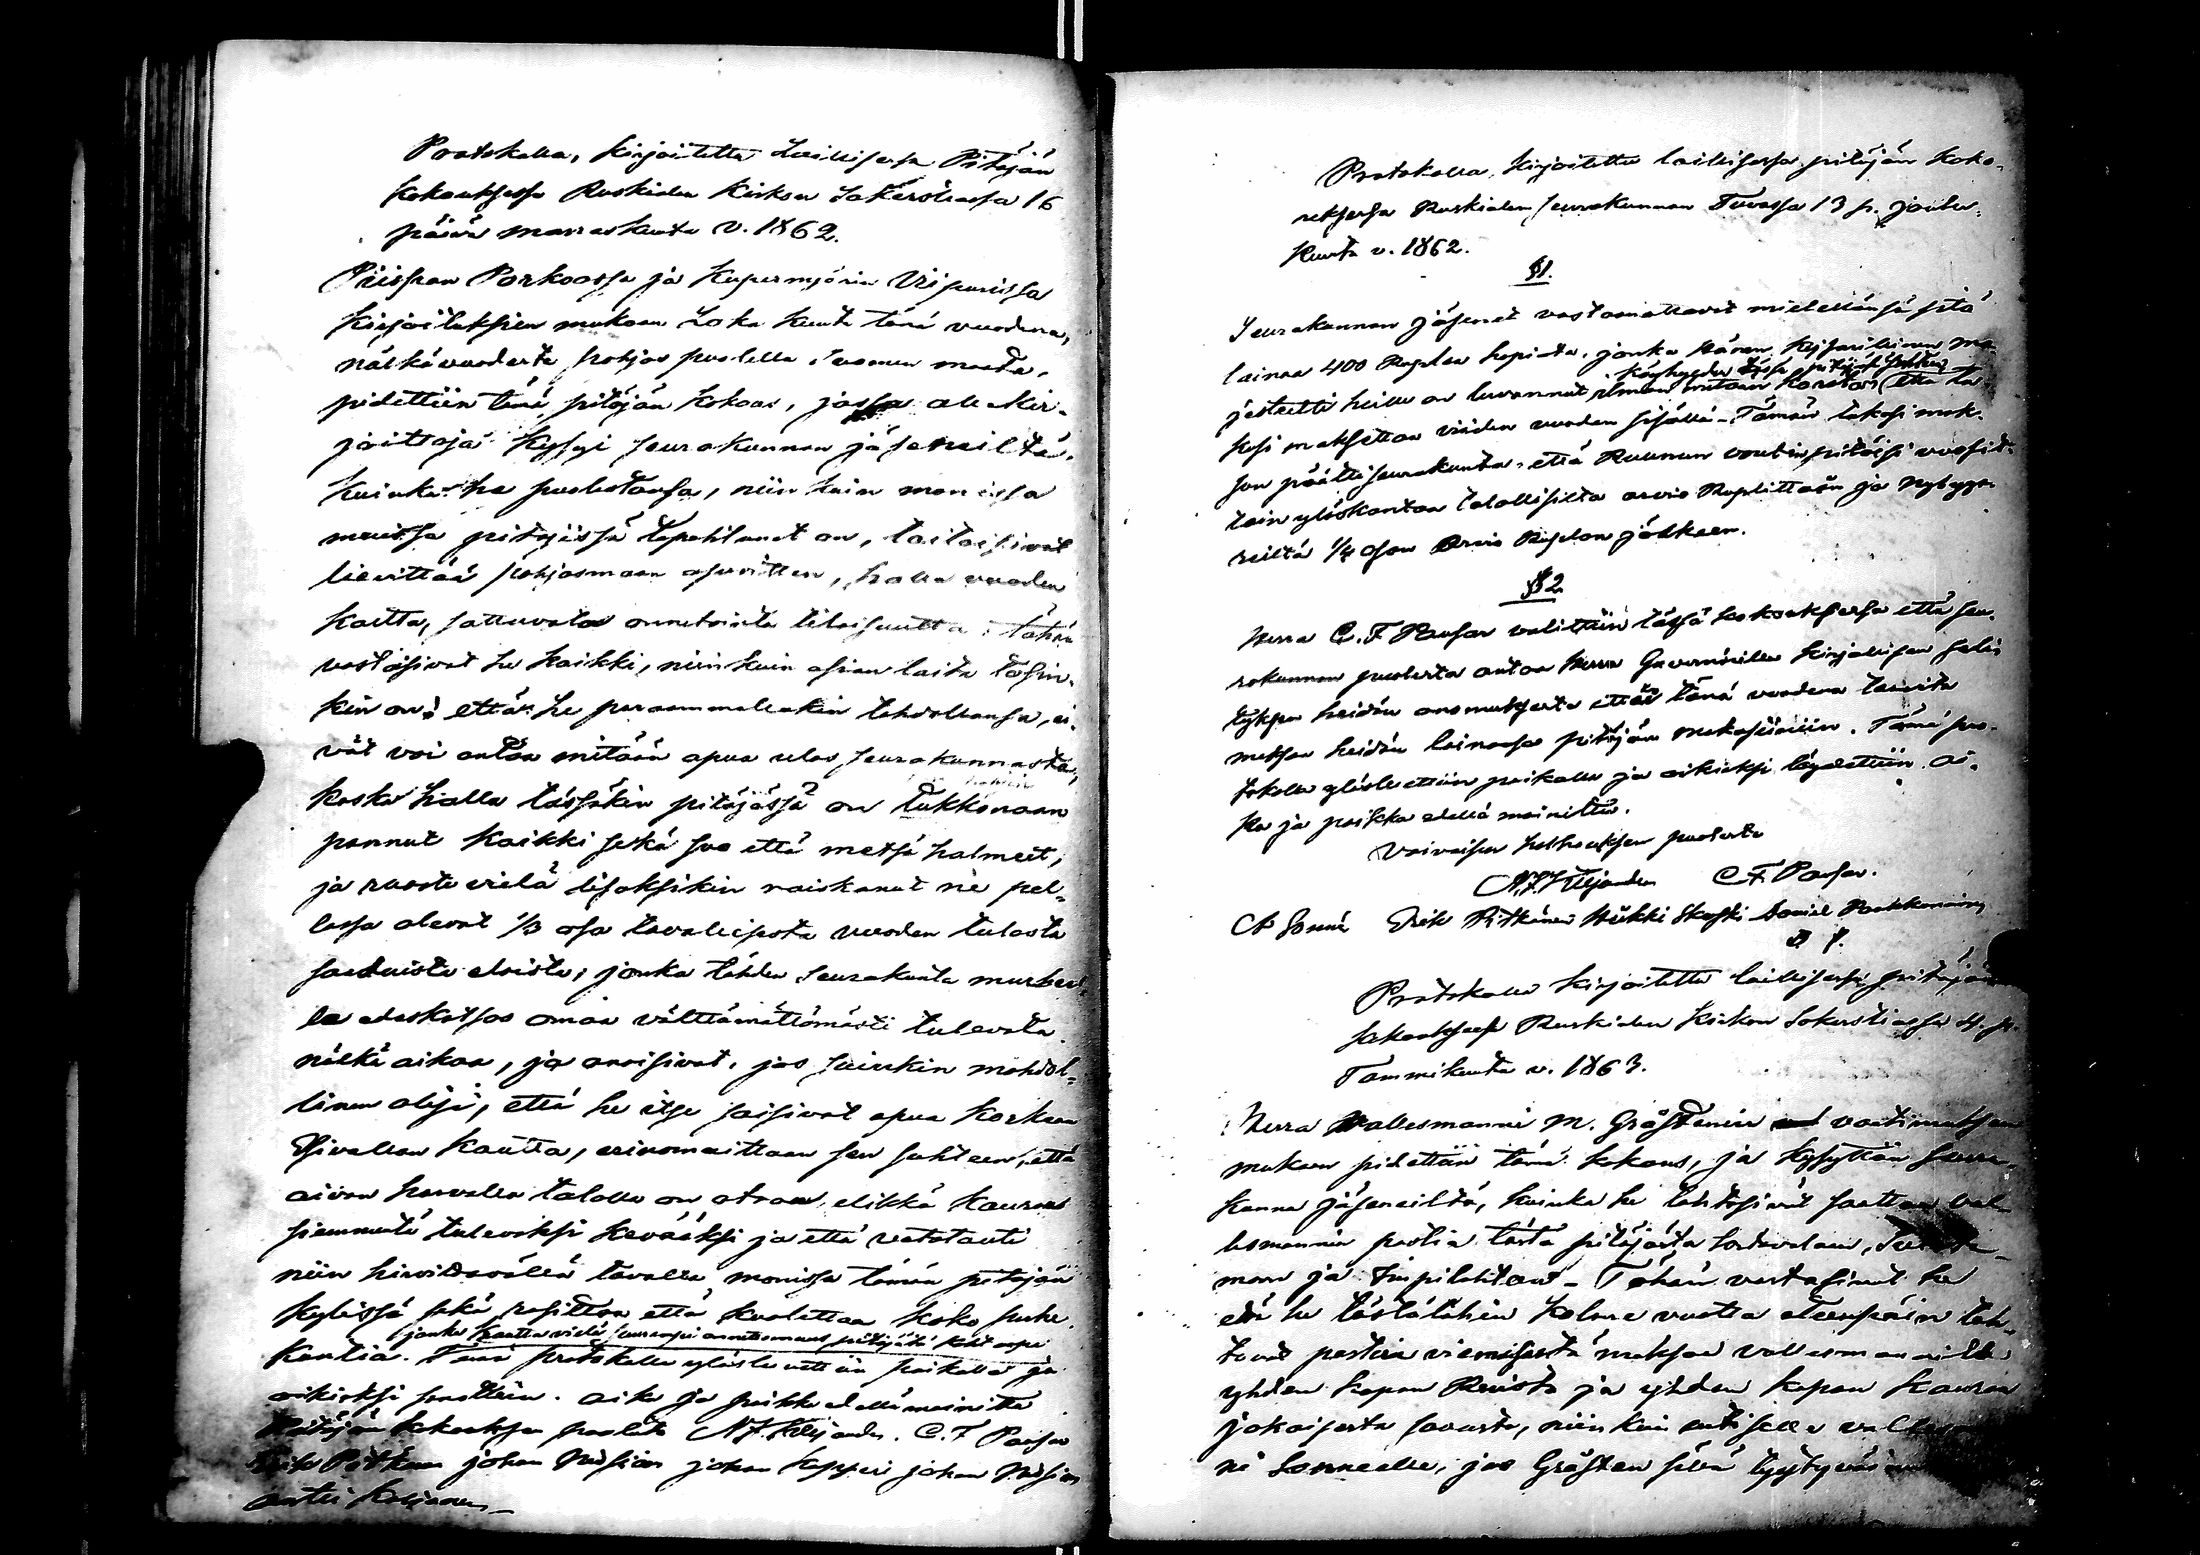 Protokolla, kirjoitettu Laillisessa Pitäjän
kokouksessa Ruskialan Kirkon Sakaristiassa 16
päivä marraskuuta v. 1862.
Piispan Porkoossa ja Kupernyörin Viipurissa
kirjoituksien mukaan Loka kuuta tänä vuodena,
nälkävuodesta pohjas puolella Suomen maata,
pidettiin tämä pitäjän kokous, jossa ale kir-
joittaja kysyi seurakunnan jäseneiltä,
kuinka he puolestansa, niin kuin monissa
muissa pitäjissä tapahtunut on, taitaisivat
lievittää pohjasmaan asuvitten, halla vuoden
kautta, sattuvata onnetointa tilaisuutta: tähän
vastaisivat he kaikki, niin kuin asian laita tosin-
kin on: että he paraammallakin tahdollansa, ei-
vät voi antaa mitään apua ulos seurakunnasta,
koska halla tässäkin pitäjässä on tukkonaan
pannut kaikki sekä suo että metsä halmeet,
ja ruoste vielä lisäksikin raiskanut ne pel-
lossa olevat 1/3 osa tavalisesta vuoden tulosta
saaduista eloista, jonka tähden Seurakunta murheel-
la edeskatsoo omaa välttämättömästi tulevata
nälkä aikaa, ja anoisivat, jos suinkin mahdol-
linen olisi, että he itse saisivat apua korkean
Esivallan kautta, erinomaittain sen suhteen, että
aivan harvalla talolla on otraa, elikkä kauraa
siemmentä tuleviksi kevääksi ja että vatatauti
niin hirvittävällä tavalla monissa tämän pitäjän
kylissä sekä rasittaa että kuolettaa koko perhe-
jonka kautta vielä suurempi onnettomuus pitäjätä kohtaapi
kuntia. Tämä protokolla ylöslu ettiin paikalla ja
oikiaksi sanottiin. aika ja paikka edellämainittu
Pitäjän kokouksen puolesta N J Kiljander. C. F Pauser
Erik Pitkänen johan Nousiain johan Kapperi johan Nousiain
antti Koljonen
Protokolla, kirjoitettu laillisessa pitäjän koko-
uksessa Ruskialan seurakunnan Tuvassa 13 p. joulu-
kuuta v. 1862.
§1.
Seurakunnan jäsenet vastaanottavat mielellänsä sitä
lainaa 400 Ruplaa hopiata, jonka Hänen Keisarillinen Ma-
jesteetti heille on luvannut ilman mitään korotoa että ta-
kasi maksettaa viiden vuoden sisällä. Tämän takasi mak-
son päätti seurakunta, että Ruunun voutin pitäisi vuosit-
tain ylöskantaa talollisilta arvio Ruplittain ja Nybygga-
reiltä 1/4 osan Arvio Ruplan jälkeen.
§2
Herra C. F Pauser valittiin tässä kokouksessa että seu-
rakunnan puolesta antaa Herra Guvernörille kirjallisen seli-
tyksen heidän anomuksesta ettei tänä vuodena tarvita
maksaa heidän lainaansa pitäjän makasiiniin. Tämä pro-
tokolla ylösluettiin paikalla ja oikiaksi löydettiin. ai-
ka ja paikka edellä mainittu.
Vaivaisen holhouksen puolesta
N J Kiljander C. F. Pauser.
Erik Pitkänen Heikki Daniel Pakkanainen
Protokolla kirjoitettu laillisessa pitäjän
kokouksessa Ruskialan Kirkon Sakaristiassa 4. p.
Tammikuuta v. 1863.
Herra Vallesmanni M. Gråsténin vaatimuksen
mukaan pidettiin tämä kokous, ja kysyttiin seura-
kunna jäseneiltä, kuinka he tahtosivat saattaa val-
lesmannin postia tästä pitäjästä Sordavalaan,
maan ja Impilahteen. Tähän vastasivat he
että he tästälähin kolme vuotta eteenpäin tah-
tovat postin viemisestä maksaa vallesmannille
yhden kapan Ruista ja yhden kapan kauroja
jokaisesta savusta, niin kuin entiselle vallesman-
ni Sonneelle, jos Gråsten siinä tyytyväinen